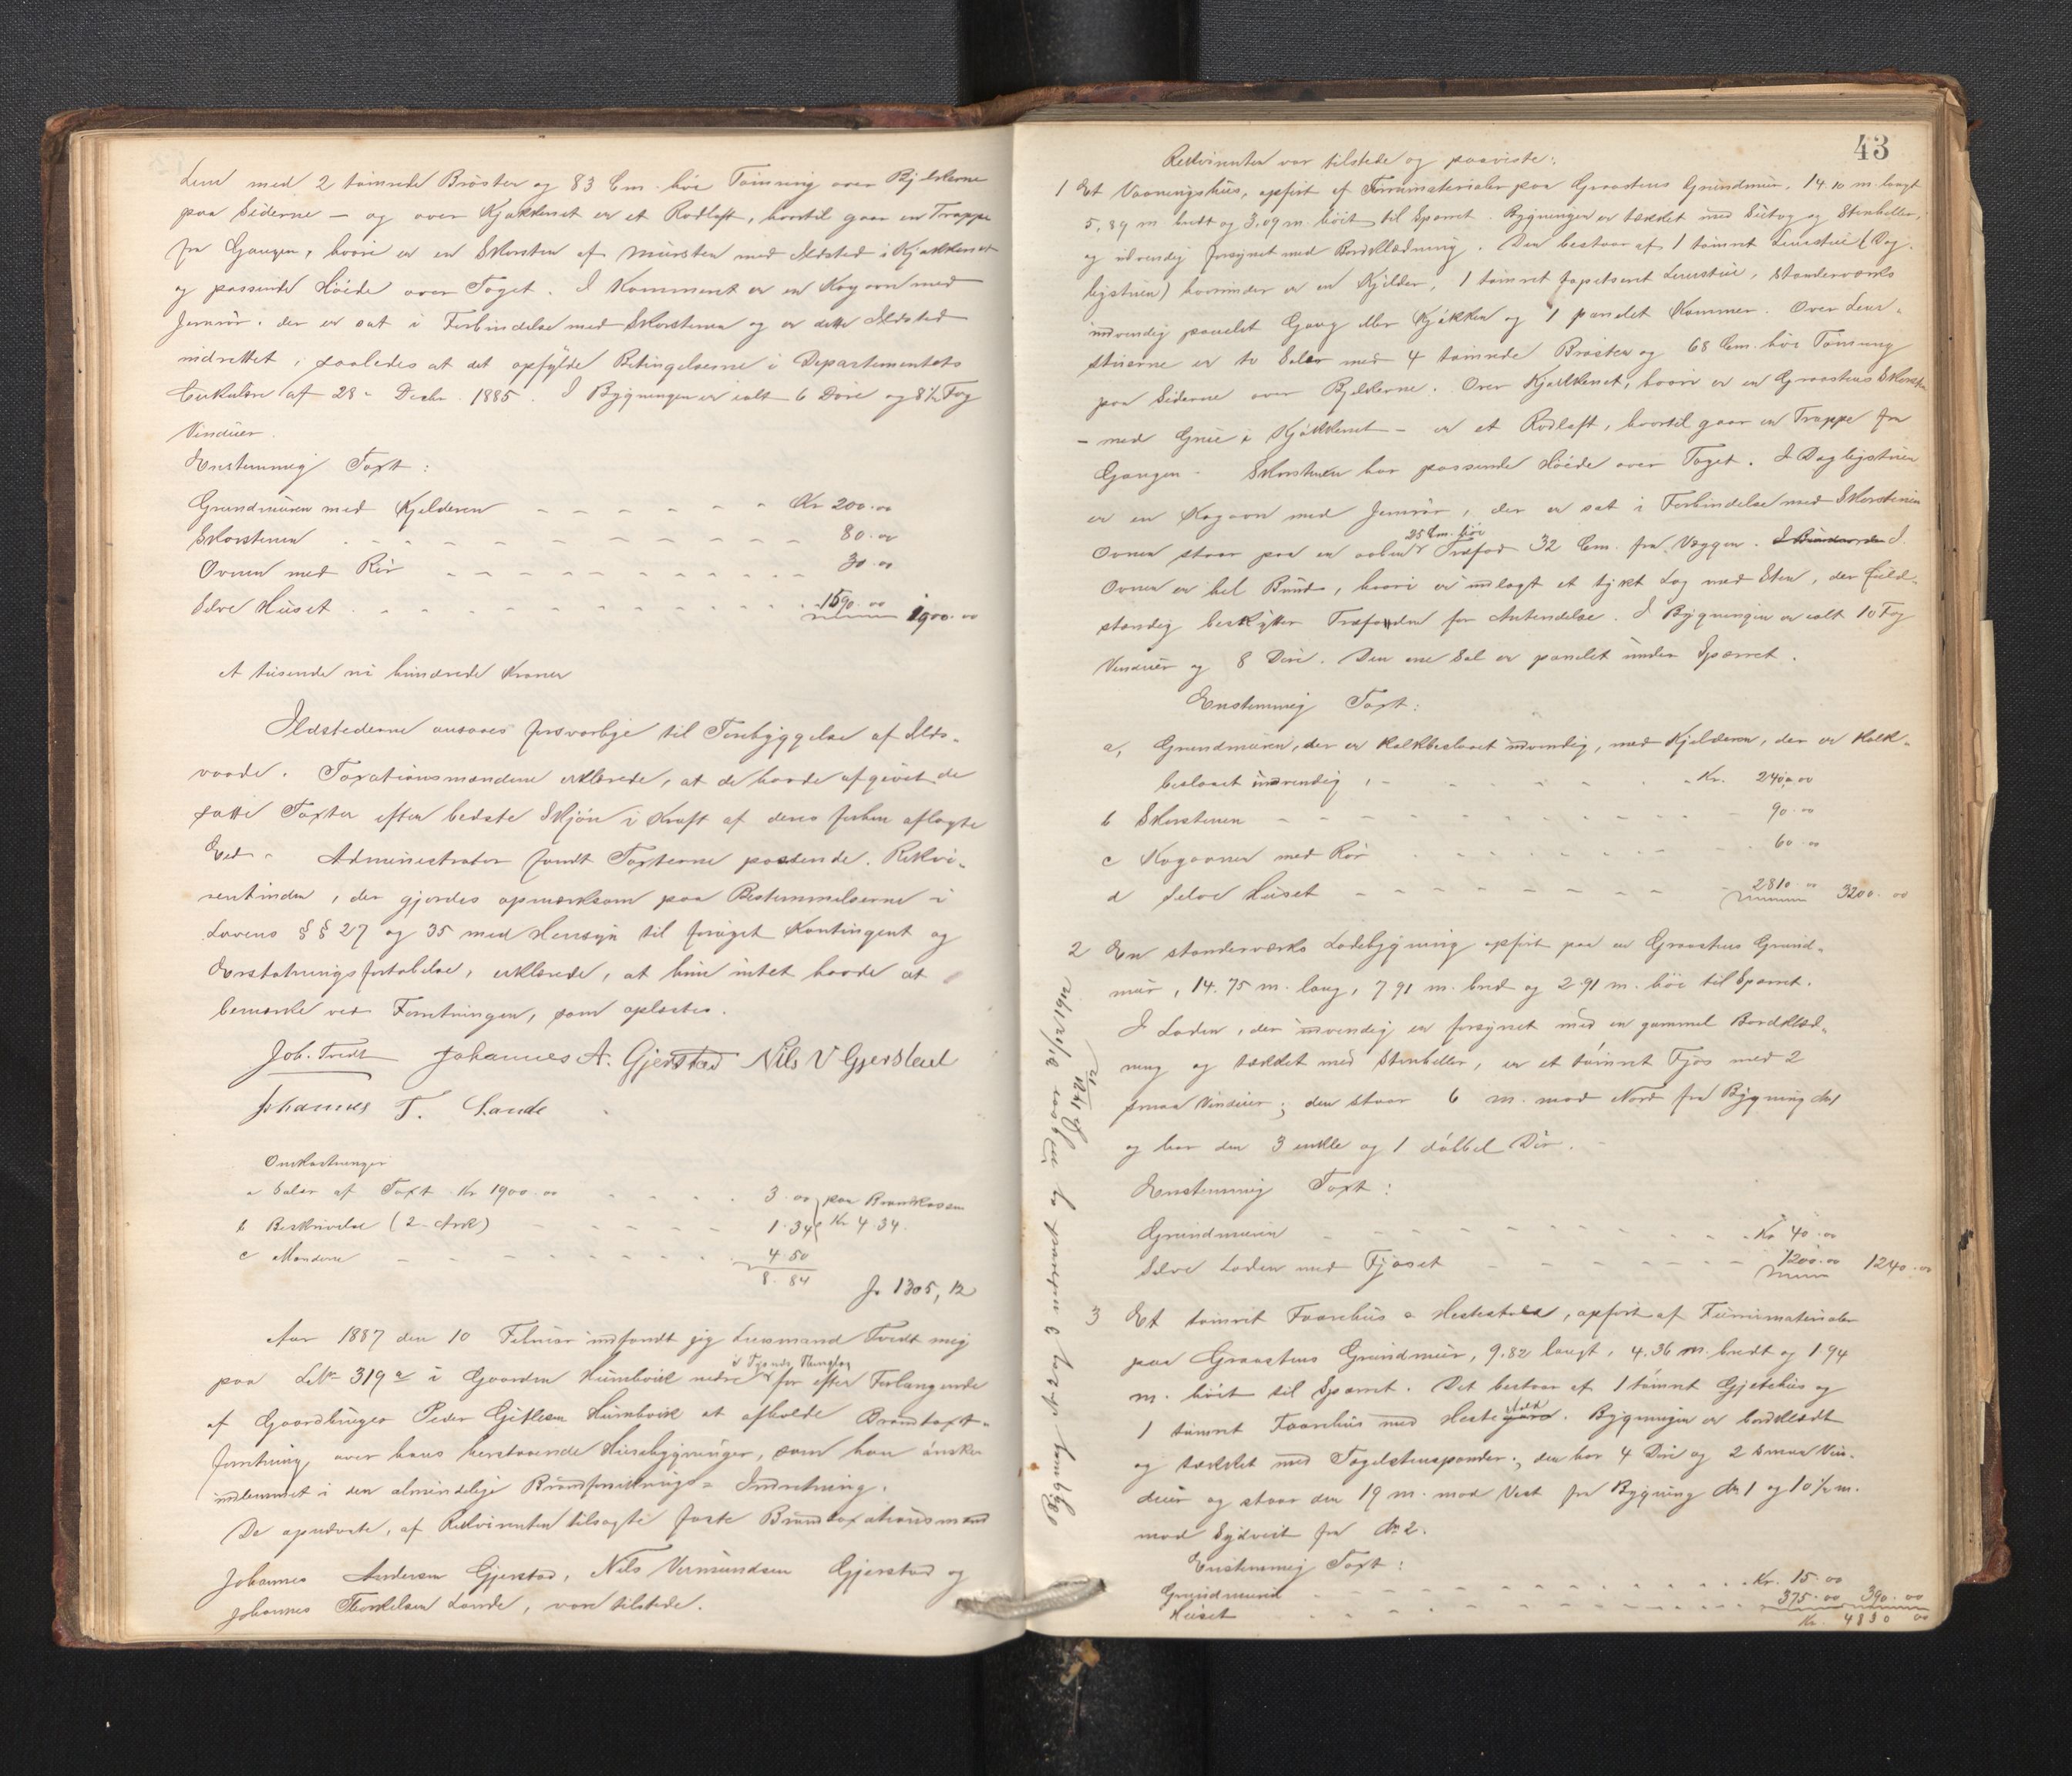 Lem med 2 tømrede Brøster og 83 Cm. høi Tømring over Bjelkerne
paa Siderne – og over Kjøkkenet er et Rodloft, hvortil gaar en Trappe
fra Gangen, hvori er en Skorsten af Mursten med Ildsted i Kjøkkenet
og passende Høide over Taget. I Kammeret er en Kogovn med
Jernrør, der er sat i Forbindelse med Skorstenen og er dette Ildsted
indrettet, saaledes at det opfylde Betingelserne i Departementets
Cirkulære af 28. Decbr. 1885. I Bygningen er ialt 6 Døre og 8½ Fag
Vinduer.
Enstemmig Taxt:
Grundmuren med Kjelderen Kr 200.00
Skorstenen 80.00
Ovnen med Rør 30.00
Selve Huset 1590.00 1900.00
Et tusende ni hundrede Kroner
Ildstederne ansaaes forsvarlige til Forebyggelse af Ilds-
vaade. Taxationsmændene erklærede, at de havde afgivet de
satte Taxter efter bedste Skjøn i Kraft af deres forhen aflagte
Eed. Administrator fandt Taxterne passende. Rekvi-
rentinden, der gjordes opmærksom paa Bestemmelserne i
Lovens §§ 27 og 35 med Hensyn til forøget Kontingent og
Erstatningsfortabelse, erklærede, at hun intet havde at
bemærke ved Forretningen, som oplæstes.
Joh. Tvedt Johannes A. Gjerstad Nils V Gjerstad
Johannes T. Lande
Omkostninger
a Salær af Taxt Kr 1900.00 3.00 paa Brandkassen
b Beskrivelse (2 Ark) 1.34 Kr 4.34.
c Mændene 4.50
8.84
Jr 1305, 12
Aar 1887 den 10 Februar indfandt jeg Lensmand Tvedt mig
i Thinglag
paa LNr 319 a i Gaarden Humbvik nedre for efter Forlangende
af Gaardbruger Peder Gitlesen Humbvik at afholde Brandtaxt-
forretning over hans herstaaende Husebygninger, som han ønsker
indlemmet i den almindelige Brandforsikrings-Indretning.
De opnævnte, af Rekvirenten tilsagte faste Brandtaxationsmænd
Johannes Andersen Gjerstad, Nils Vermundsen Gjerstad og
Johannes Thorkelsen Lande, vare tilstede.
43
Rekvirenten var tilstede og paaviste:
1 Et Vaaningshus, opført af Furumaterialer paa Graastens Grundmur, 14.10 m. langt
5,89 m. bredt og 3,09 m. høit til Sparret. Bygningen er tækket med Sutag og Stenheller,
og udvendig forsynet med Bordklædning. Den bestaar af 1 tømret Lemstue (Dag-
ligstuen) hvorunder er en Kjelder, 1 tømret tapetseret Lemstue, standerværks
indvendig panelet Gang eller Kjøkken og 1 panelet Kammer. Over Lem-
stuerne er to Saler med 4 tømrede Brøster og 68 Cm. høi Tømring
paa Siderne over Bjelkerne. Over Kjøkkenet, hvori er en Graastens Skorsten
– med Grue i Kjøkkenet – er et Rodloft, hvortil gaar en Trappe fra
Gangen. Skorstenen har passende Høide over Taget. I Dagligstuen
er en Kogovn med Jernrør, der er sat i Forbindelse med Skorstenen
25 Cm. høi
Ovnen staar paa en aaben Træfod 32 Cm. fra Væggen. I
Ovnen er hel Bund, hvori er indlagt et tykt Lag med Sten, der fuld-
stændig beskytter Træfoden for Antændelse. I Bygningen er ialt 10 Fag
Vinduer og 8 Døre. Den ene Sal er panelet under Sparret.
Enstemmig Taxt:
a, Grundmuren, der er kalkbeslaaet udvendig, med Kjelderen, der er kalk-
beslaaet indvendig, Kr. 240.00
b Skorstenen 90.00
c Kogovnen med Rør 60.00
d Selve Huset 2810.00 3200.00
2 En standerværks Ladebygning opført paa en Graastens Grund-
mur, 14.75 m. lang, 7.91 m. bred og 2.91 m. høi til Sparret.
I Laden, der udvendig er forsynet med en gammel Bordklæd-
ning og tækket med Stenheller, er et tømret Fjøs med 2
smaa Vinduer; den staar 6 m. mod Nord fra Bygning No 1
og har den 3 enkle og 1 dobbel Dør.
Enstemmig Taxt:
Grundmuren Kr 40.00
Selve Laden med Fjøset 1200.00 1240.00
3 Et tømret Faarehus & Hestestald, opført af Furumaterialer
paa Graastens Grundmur, 9.82 langt, 4.36 m. bredt og 1.94
m. høit til Sparret. Det bestaar af 1 tømret Gjetehus og
stald
1 tømret Faarehus med Heste. Bygningen er bordklædt
og tækket med Tagelstenspander; den har 4 Døre og 2 smaa Vin-
duer og staar den 19 m. mod Vest fra Bygning No 1 og 10½ m.
mod Sydvest fra No 2.
Enstemmig Taxt:
Grundmuren Kr. 15.00
Huset 375.00 390.00
Kr. 4830 00